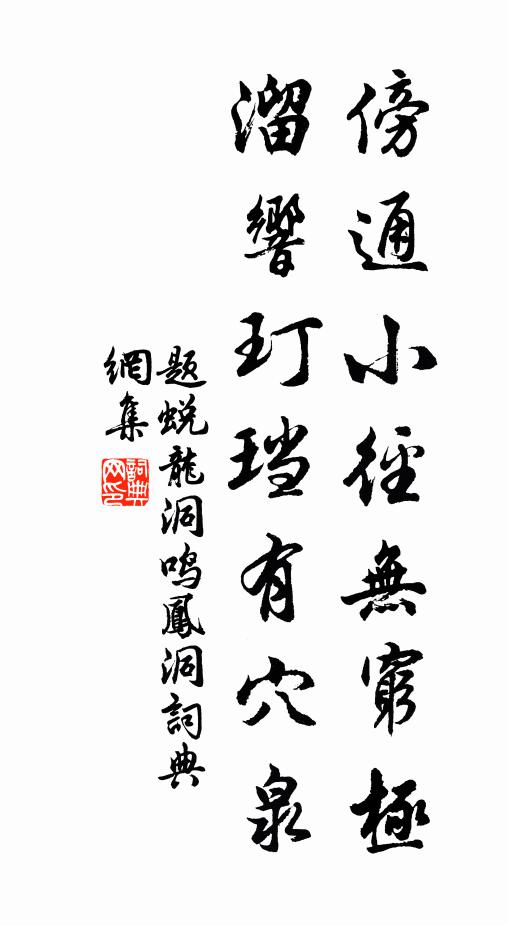 傍通小徑無窮極
溜響玎珰有穴泉
題蛻龍洞鳴鳳洞詞典
網集
詞典网印